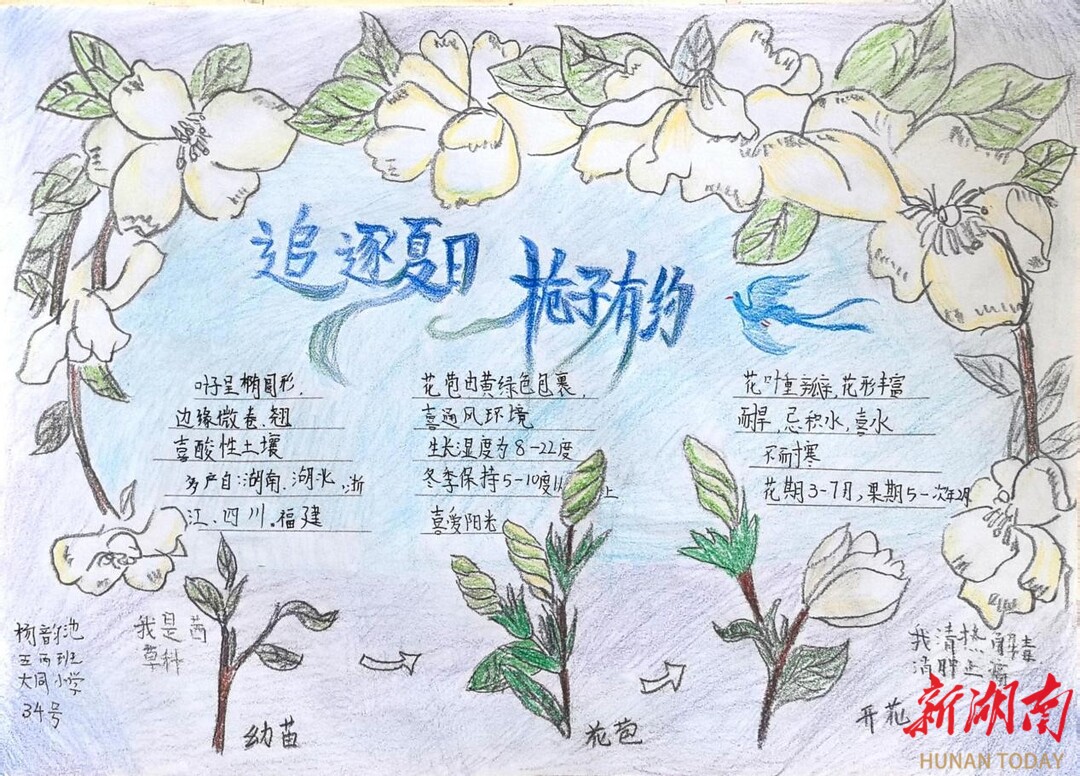 追逐夏日
栀子有约
叶子呈椭圆形,
边缘微卷、翘
喜酸性土壤
多产自:湖南、湖北、浙
江、四川。福建
花苞由黄绿色包裹,
喜通风环境
生长湿度为8-22度
冬季保持5-10度以上
喜爱阳光
花叶重瓣,花形丰富
耐旱,忌积水,喜水
不耐寒
花期3-7月,果期5-次年2月
我是茜
草科
杨韵池
五丙班
大同小学
34号
幼苗
花苞
开花
我清热解毒
消肿止痛
新湖南
HUNAN TODAY